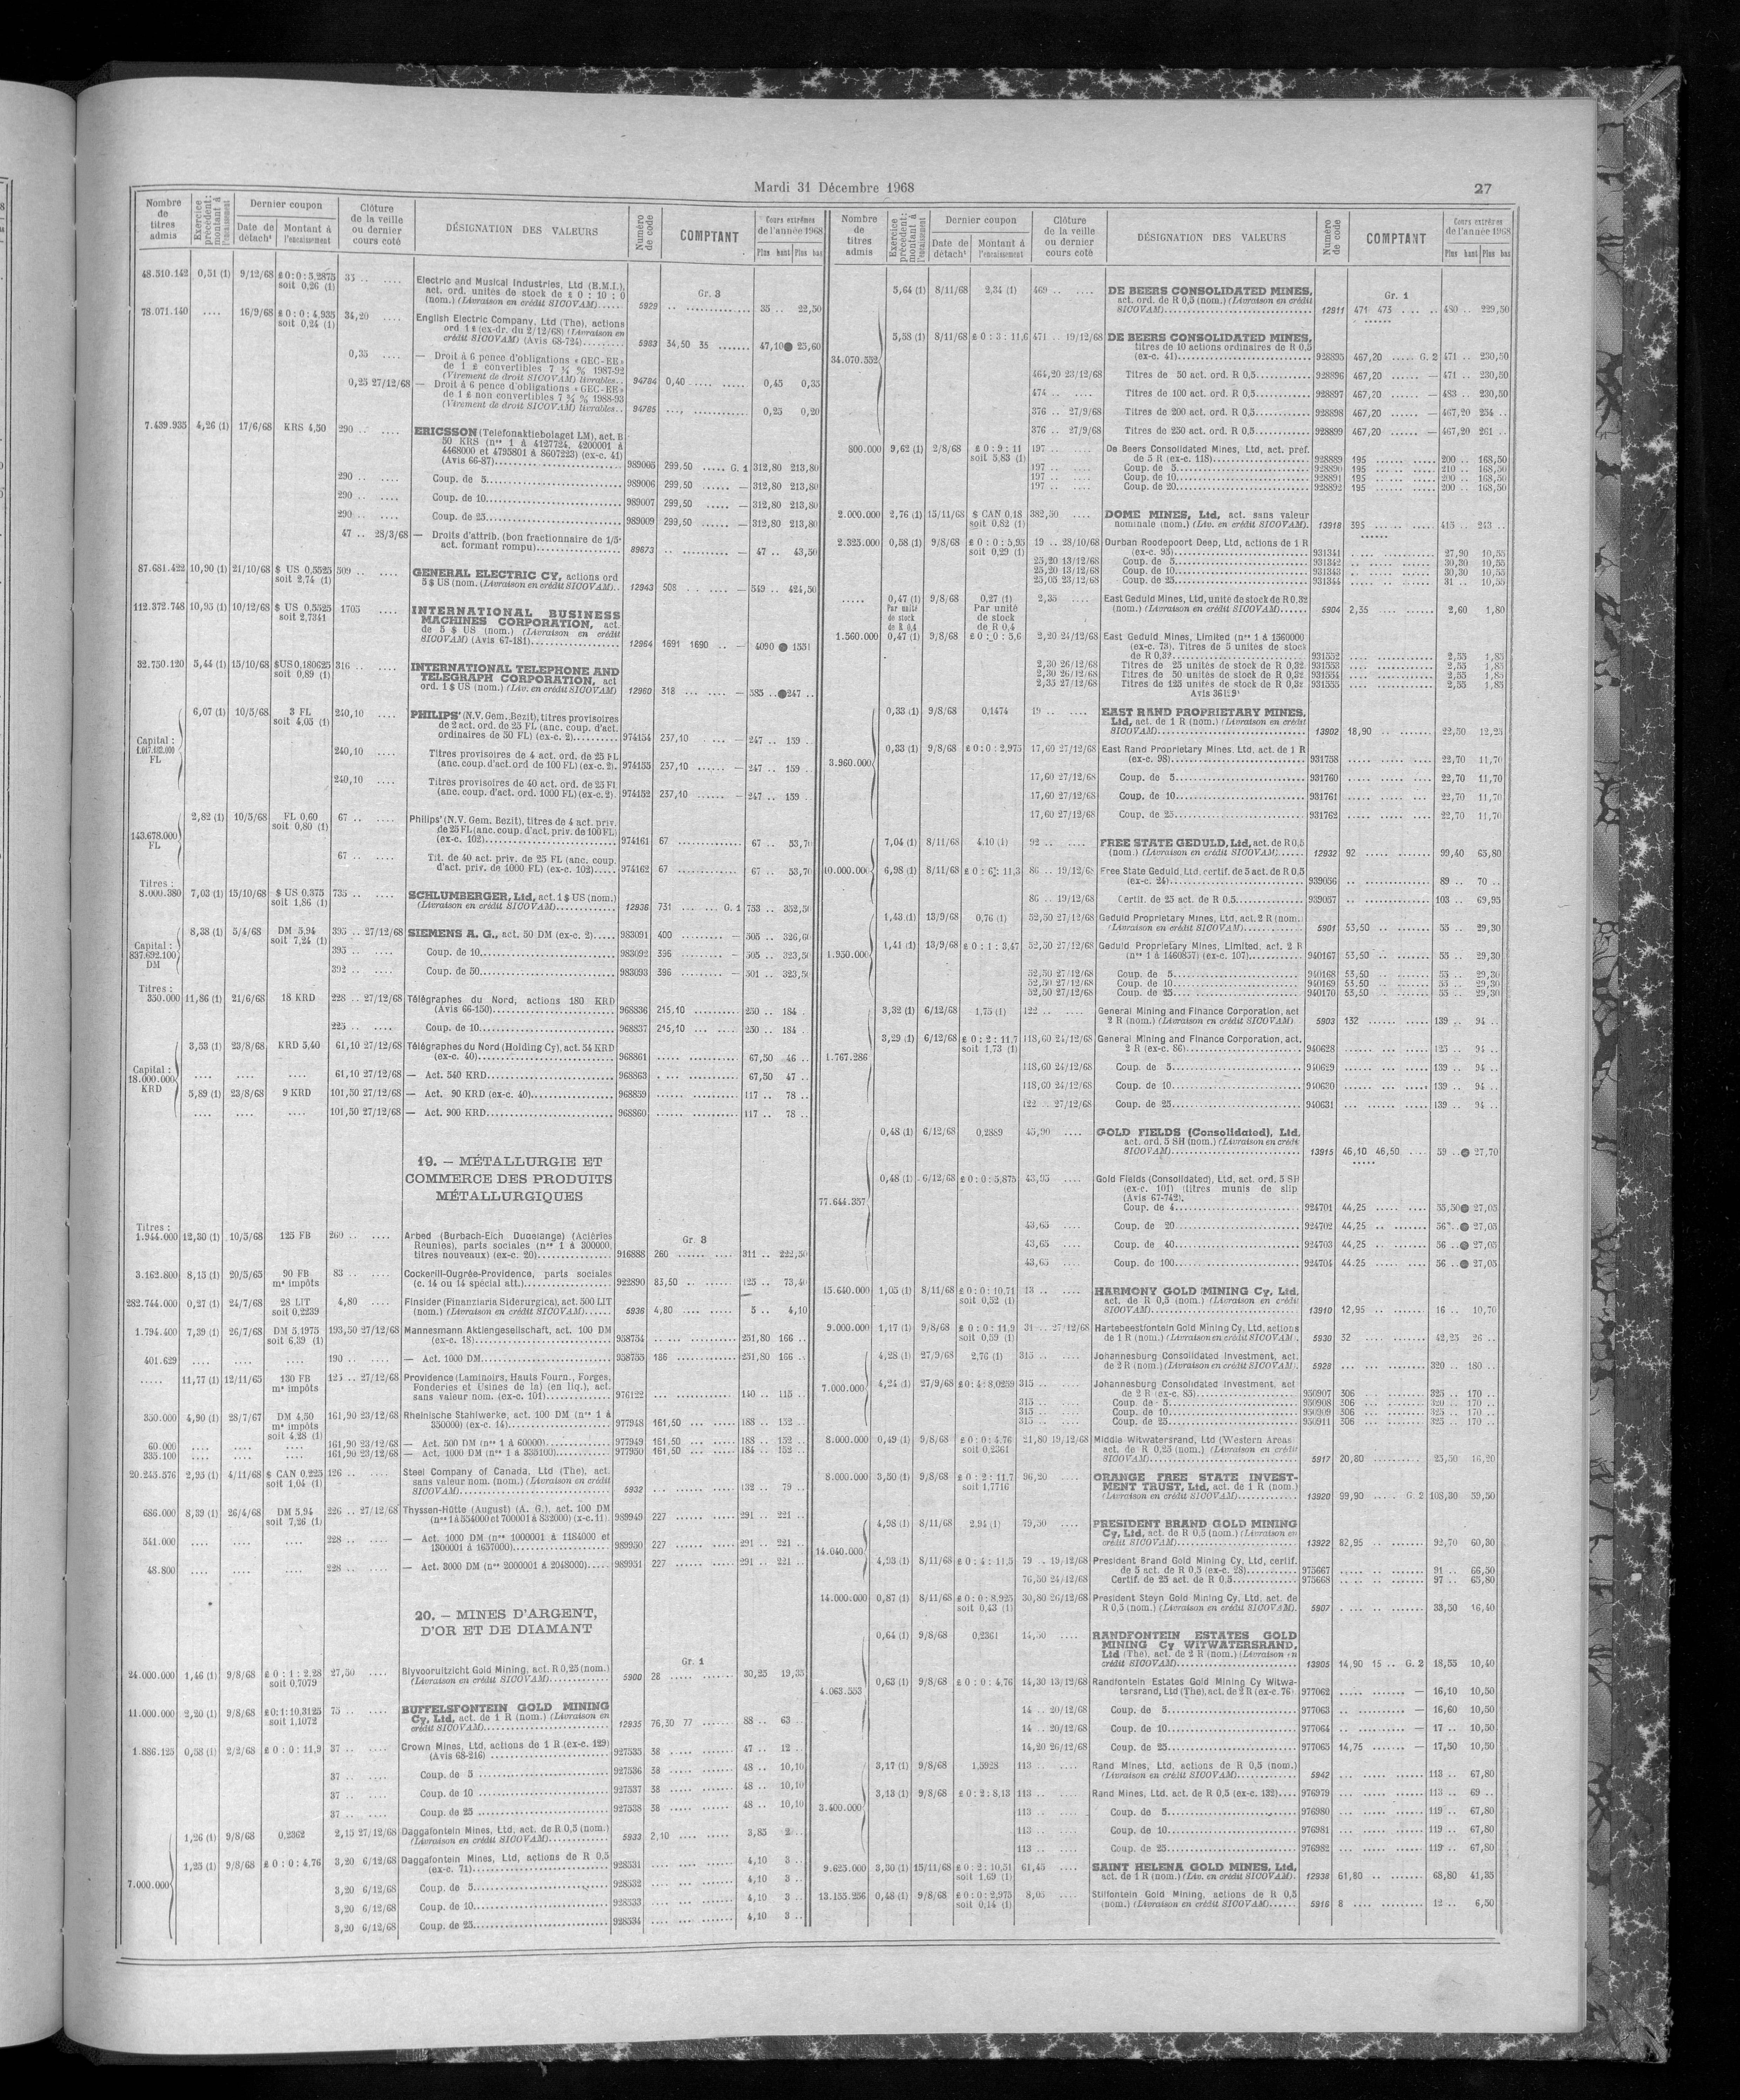 Mardi 31 Décembre 1968
27
Nombre de titres admis
Exercice précédent: montant à l'encaissement
Dernier coupon
Date de détacht
Montant à l'encaissement
Clôture de la veille ou dernier cours coté
DÉSIGNATION DES VALEURS
Numéro de code
COMPTANT
Cours extrêmes de l'année 1968
Plus haut
Plus bas
48.510.142 0,51 (1) 9/12/68 £ 0:0:5,2875 35 .. .... Electric and Musical Industries, Ltd (E.M.I.),
soit 0,26 (1) act. ord. unités de stock de £ 0 : 10 : 0
Gr. 3
(nom.) (Livraison en crédit SICOVAM)...... 5929 35 .. 22,50
78.071.140 .... 16/9/68 £ 0:0:4,935 34,20 .... English Electric Company, Ltd (The), actions
soit 0,24 (1) ord 1 £ (ex-dr. du 2/12/68) (Livraison en
crédit SICOVAM) (Avis 68-724)......... 5983 34,50 35 ....... 47,10● 25,60
0,35 .... — Droit à 6 pence d'obligations «GEC-EE»
de 1 £ convertibles 7 ¼ % 1987-92
(Virement de droit SICOVAM) livrables.. 94784 0,40 .... ..... 0,45 0,35
0,25 27/12/68 — Droit à 6 pence d'obligations «GEC-EE»
de 1 £ non convertibles 7 ¾ % 1988-93
(Virement de droit SICOVAM) livrables.. 94785 0,25 0,20
7.439.935 4,26 (1) 17/6/68 KRS 4,50 290 .. .... ERICSSON (Telefonaktiebolaget LM), act. B
50 KRS (nos 1 à 4127724, 4200001 à
4468000 et 4795801 à 8607223) (ex-c. 41)
(Avis 66-87)........ 989005 299,50 ..... G. 1 312,80 213,80
290 .. .... Coup. de 5........ 989006 299,50 ...... — 312,80 213,80
290 .. .... Coup. de 10........ 989007 299,50 ..... — 312,80 213,80
290 .. .... Coup. de 25........ 989009 299,50 ...... — 312,80 213,80
47 .. 28/3/68 — Droits d'attrib. (bon fractionnaire de 1/5e
act. formant rompu)........ 89673 — 47 .. 43,50
87.681.422 10,90 (1) 21/10/68 $ US 0,5525 509 .. .... GENERAL ELECTRIC CY, actions ord
soit 2,74 (1) 5 $ US (nom. (Livraison en crédit SICOVAM).. 12943 508 — 549 .. 424,50
112.372.748 10,95 (1) 10/12/68 $ US 0,5525 1705 .... INTERNATIONAL BUSINESS
soit 2,7341 MACHINES CORPORATION, act.
de 5 $ US (nom.) (Livraison en crédit
SICOVAM) (Avis 67-181)........ 12964 1691 1690 .. — 4090 ● 1551
32.750.120 5,44 (1) 15/10/68 $US 0,180625 316 .. .... INTERNATIONAL TELEPHONE AND
soit 0,89 (1) TELEGRAPH CORPORATION, act
ord. 1 $ US (nom.) (Liv. en crédit SICOVAM) 12960 318 — 585 ..●247 ..
6,07 (1) 10/5/68 3 FL 240,10 .... PHILIPS' (N.V. Gem. Bezit), titres provisoires
soit 4,05 (1) de 2 act. ord. de 25 FL (anc. coup. d'act.
Capital : FL
ordinaires de 50 FL) (ex-c. 2).......... 974154 237,10 — 247 .. 159 ..
240,10 .... Titres provisoires de 4 act. ord. de 25 FL
(anc. coup. d'act. ord de 100 FL) (ex-c. 2). 974155 237,10 — 247 .. 159 ..
240,10 .... Titres provisoires de 40 act. ord. de 25 Fl
(anc. coup. d'act. ord. 1000 FL) (ex-c. 2). 974152 237,10 — 247 .. 159 ..
143.678.000 FL
2,82 (1) 10/5/68 FL 0,60 67 .. .... Philips' (N.V. Gem. Bezit), titres de 4 act. priv.
soit 0,80 (1) de 25 FL (anc. coup. d'act. priv. de 100 FL)
(ex-c. 102)........ 974161 67 67 .. 53,70
67 .. .... Tit. de 40 act. priv. de 25 FL (anc. coup.
d'act. priv. de 1000 FL) (ex-c. 102)..... 974162 67 67 .. 53,70
Titres :
8.000.380 7,03 (1) 15/10/68 $ US 0,375 735 .. .... SCHLUMBERGER, Ltd, act. 1 $ US (nom.)
soit 1,86 (1) (Livraison en crédit SICOVAM)........ 12936 731 G. 1 753 .. 352,50
Capital : 837.692.100 DM
8,38 (1) 5/4/68 DM 5,94 395 .. 27/12/68 SIEMENS A. G., act. 50 DM (ex-c. 2)..... 983091 400 — 505 .. 326,60
soit 7,24 (1)
395 .. .... Coup. de 10........ 983092 396 — 505 .. 323,50
392 .. .... Coup. de 50........ 983093 396 — 501 .. 323,50
Titres :
350.000 11,86 (1) 21/6/68 18 KRD 228 .. 27/12/68 Télégraphes du Nord, actions 180 KRD
(Avis 66-150)........ 968836 215,10 250 .. 184 ..
225 .. .... Coup. de 10........ 968837 215,10 250 .. 184 ..
3,53 (1) 23/8/68 KRD 5,40 61,10 27/12/68 Télégraphes du Nord (Holding Cy), act. 54 KRD
(ex-c. 40)........ 968861 67,50 46 ..
Capital : 18.000.000 KRD
.... .... .... 61,10 27/12/68 — Act. 540 KRD........ 968863 67,50 47 ..
5,89 (1) 23/8/68 9 KRD 101,50 27/12/68 — Act. 90 KRD (ex-c. 40)........ 968859 117 .. 78 ..
.... .... .... 101,50 27/12/68 — Act. 900 KRD........ 968860 117 .. 78 ..
19. — MÉTALLURGIE ET
COMMERCE DES PRODUITS
MÉTALLURGIQUES
Gr. 3
Titres :
1.944.000 12,30 (1) 10/5/68 125 FB 260 .. .... Arbed (Burbach-Eich Dudelange) (Aciéries
Réunies), parts sociales (nos 1 à 300000,
titres nouveaux) (ex-c. 20)........ 916888 260 311 .. 222,50
3.162.800 8,15 (1) 20/5/65 90 FB 83 .. .... Cockerill-Ougrée-Providence, parts sociales
ms impôts (c. 14 ou 14 spécial att.)........ 922890 83,50 125 .. 73,40
282.744.000 0,27 (1) 24/7/68 28 LIT 4,80 .... Finsider (Finanziaria Siderurgica), act. 500 LIT
soit 0,2239 (nom.) (Livraison en crédit SICOVAM)...... 5936 4,80 5 .. 4,10
1.794.400 7,39 (1) 26/7/68 DM 5,1975 193,50 27/12/68 Mannesmann Aktiengesellschaft, act. 100 DM
soit 6,39 (1) (ex-c. 18)........ 958754 251,80 166 ..
401.629 .... .... .... 190 .. .... — Act. 1000 DM........ 958755 186 251,80 166 ..
..... 11,77 (1) 12/11/65 130 FB 125 .. 27/12/68 Providence (Laminoirs, Hauts Fourn., Forges,
ms impôts Fonderies et Usines de la) (en liq.), act.
sans valeur nom. (ex-c. 101)........ 976122 140 .. 115 ..
350.000 4,90 (1) 28/7/67 DM 4,50 161,90 23/12/68 Rheinische Stahlwerke, act. 100 DM (nos 1 à
ms impôts 350000) (ex-c. 14)........ 977948 161,50 188 .. 152 ..
soit 4,28 (1)
60.000 .... .... .... 161,90 23/12/68 — Act. 500 DM (nos 1 à 60000)........ 977949 161,50 188 .. 152 ..
335.100 .... .... .... 161,90 23/12/68 — Act. 1000 DM (nos 1 à 335100)........ 977950 161,50 184 .. 152 ..
20.245.576 2,95 (1) 4/11/68 $ CAN 0,225 126 .. .... Steel Company of Canada, Ltd (The), act.
soit 1,04 (1) sans valeur nom. (nom.) (Livraison en crédit
SICOVAM)........ 5932 132 .. 79 ..
686.000 8,39 (1) 26/4/68 DM 5,94 226 .. 27/12/68 Thyssen-Hütte (August) (A. G.), act. 100 DM
soit 7,26 (1) (nos 1 à 554000 et 700001 à 832000) (x-c. 11). 989949 227 291 .. 221 ..
541.000 .... .... .... 228 .. .... — Act. 1000 DM (nos 1000001 à 1184000 et
1300001 à 1657000)........ 989950 227 291 .. 221 ..
48.800 .... .... .... 228 .. .... — Act. 3000 DM (nos 2000001 à 2048000)..... 989951 227 291 .. 221 ..
20. — MINES D'ARGENT,
D'OR ET DE DIAMANT
Gr. 1
24.000.000 1,46 (1) 9/8/68 £ 0:1:2,28 27,50 .... Blyvooruitzicht Gold Mining, act. R 0,25 (nom.)
soit 0,7079 (Livraison en crédit SICOVAM)........ 5900 28 30,25 19,35
11.000.000 2,20 (1) 9/8/68 £0:1:10,3125 75 .. .... BUFFELSFONTEIN GOLD MINING
soit 1,1072 Cy, Ltd, act. de 1 R (nom.) (Livraison en
crédit SICOVAM)........ 12935 76,30 77 88 .. 63 ..
1.886.125 0,58 (1) 2/2/68 £ 0:0:11,9 37 .. .... Crown Mines, Ltd, actions de 1 R (ex-c. 129)
(Avis 68-216)........ 927535 38 47 .. 12 ..
37 .. .... Coup. de 5........ 927536 38 48 .. 10,10
37 .. .... Coup. de 10........ 927537 38 48 .. 10,10
37 .. .... Coup. de 25........ 927538 38 48 .. 10,10
7.000.000
1,26 (1) 9/8/68 0,2362 2,15 27/12/68 Daggafontein Mines, Ltd, act. de R 0,5 (nom.)
(Livraison en crédit SICOVAM)........ 5933 2,10 3,85 2 ..
1,25 (1) 9/8/68 £ 0:0:4,76 3,20 6/12/68 Daggafontein Mines, Ltd, actions de R 0,5
(ex-c. 71)........ 928531 4,10 3 ..
3,20 6/12/68 Coup. de 5........ 928532 4,10 3 ..
3,20 6/12/68 Coup. de 10........ 928533 4,10 3 ..
3,20 6/12/68 Coup. de 25........ 928534 4,10 3 ..
Nombre de titres admis
Exercice précédent: montant à l'encaissement
Dernier coupon
Date de détacht
Montant à l'encaissement
Clôture de la veille ou dernier cours coté
DÉSIGNATION DES VALEURS
Numéro de code
COMPTANT
Cours extrêmes de l'année 1968
Plus haut
Plus bas
34.070.552
5,64 (1) 8/11/68 2,34 (1) 469 .. .... DE BEERS CONSOLIDATED MINES,
act. ord. de R 0,5 (nom.) (Livraison en crédit
Gr. 1
SICOVAM)........ 12911 471 473 480 .. 229,50
5,58 (1) 8/11/68 £ 0:3:11,6 471 .. 19/12/68 DE BEERS CONSOLIDATED MINES,
titres de 10 actions ordinaires de R 0,5
(ex-c. 41)........ 928895 467,20 ..... G. 2 471 .. 230,50
464,20 23/12/68 Titres de 50 act. ord. R 0,5........ 928896 467,20 — 471 .. 230,50
474 .. .... Titres de 100 act. ord. R 0,5........ 928897 467,20 — 483 .. 230,50
376 .. 27/9/68 Titres de 200 act. ord. R 0,5........ 928898 467,20 — 467,20 254 ..
376 .. 27/9/68 Titres de 250 act. ord. R 0,5........ 928899 467,20 — 467,20 261 ..
800.000 9,62 (1) 2/8/68 £ 0:9:11 197 .. .... De Beers Consolidated Mines, Ltd, act. pref.
soit 5,83 (1) de 5 R (ex-c. 118)........ 928889 195 200 .. 168,50
197 .. .... Coup. de 5........ 928890 195 210 .. 168,50
197 .. .... Coup. de 10........ 928891 195 200 .. 168,50
197 .. .... Coup. de 20........ 928892 195 200 .. 168,50
2.000.000 2,76 (1) 15/11/68 $ CAN 0,18 382,50 .... DOME MINES, Ltd, act. sans valeur
soit 0,82 (1) nominale (nom.) (Liv. en crédit SICOVAM). 13918 395 415 .. 243 ..
2.325.000 0,58 (1) 9/8/68 £ 0:0:5,95 19 .. 28/10/68 Durban Roodepoort Deep, Ltd, actions de 1 R
soit 0,29 (1) (ex-c. 95)........ 931341 27,90 10,55
25,20 13/12/68 Coup. de 5........ 931342 30,30 10,55
25,20 13/12/68 Coup. de 10........ 931343 30,30 10,55
25,05 23/12/68 Coup. de 25........ 931344 31 .. 10,55
..... 0,47 (1) 9/8/68 0,27 (1) 2,35 .... East Geduld Mines, Ltd, unité de stock de R 0,32
Par unité de stock de R 0,4
Par unité de stock de R 0,4
(nom.) (Livraison en crédit SICOVAM)...... 5904 2,35 2,60 1,80
1.560.000 0,47 (1) 9/8/68 £ 0:0:5,6 2,20 24/12/68 East Geduld Mines, Limited (nos 1 à 1560000
(ex-c. 73). Titres de 5 unités de stock
de R 0,32........ 931552 2,55 1,85
2,30 26/12/68 Titres de 25 unités de stock de R 0,32. 931553 2,55 1,85
2,30 26/12/68 Titres de 50 unités de stock de R 0,32. 931554 2,55 1,85
2,35 27/12/68 Titres de 125 unités de stock de R 0,32 931555 2,55 1,85
3.960.000
0,33 (1) 9/8/68 0,1474 19 .. .... EAST RAND PROPRIETARY MINES,
Ltd, act. de 1 R (nom.) (Livraison en crédit
SICOVAM)........ 13902 18,90 22,50 12,25
0,33 (1) 9/8/68 £ 0:0:2,975 17,60 27/12/68 East Rand Proprietary Mines, Ltd, act. de 1 R
(ex-c. 98)........ 931758 22,70 11,70
17,60 27/12/68 Coup. de 5........ 931760 22,70 11,70
17,60 27/12/68 Coup. de 10........ 931761 22,70 11,70
17,60 27/12/68 Coup. de 25........ 931762 22,70 11,70
10.000.000
7,04 (1) 8/11/68 4,10 (1) 92 .. .... FREE STATE GEDULD, Ltd, act. de R 0,5
(nom.) (Livraison en crédit SICOVAM)...... 12932 92 99,40 65,80
6,98 (1) 8/11/68 £ 0:6:11,3 86 .. 19/12/68 Free State Geduld, Ltd, certif. de 5 act. de R 0,5
(ex-c. 24)........ 939056 89 .. 70 ..
86 .. 19/12/68 Certif. de 25 act. de R 0,5........ 939057 103 .. 69,95
1.950.000
1,43 (1) 13/9/68 0,76 (1) 52,50 27/12/68 Geduld Proprietary Mines, Ltd, act. 2 R (nom.)
(Livraison en crédit SICOVAM)........ 5901 53,50 55 .. 29,30
1,41 (1) 13/9/68 £ 0:1:3,47 52,50 27/12/68 Geduld Proprietary Mines, Limited, act. 2 R
(nos 1 à 1460857) (ex-c. 107)........ 940167 53,50 55 .. 29,30
52,50 27/12/68 Coup. de 5........ 940168 53,50 55 .. 29,30
52,50 27/12/68 Coup. de 10........ 940169 53,50 55 .. 29,30
52,50 27/12/68 Coup. de 25........ 940170 53,50 55 .. 29,30
1.767.286
3,32 (1) 6/12/68 1,75 (1) 122 .. .... General Mining and Finance Corporation, act
2 R (nom.) (Livraison en crédit SICOVAM) 5903 132 139 .. 94 ..
3,29 (1) 6/12/68 £ 0:2:11,7 118,60 24/12/68 General Mining and Finance Corporation, act.
soit 1,73 (1) 2 R (ex-c. 86)........ 940628 125 .. 94 ..
118,60 24/12/68 Coup. de 5........ 940629 139 .. 94 ..
118,60 24/12/68 Coup. de 10........ 940630 139 .. 94 ..
122 .. 27/12/68 Coup. de 25........ 940631 139 .. 94 ..
77.644.357
0,48 (1) 6/12/68 0,2889 45,90 .... GOLD FIELDS (Consolidated), Ltd,
act. ord. 5 SH (nom.) (Livraison en crédit
SICOVAM)........ 13915 46,10 46,50 59 ..● 27,70
0,48 (1) 6/12/68 £ 0:0:5,875 43,95 .... Gold Fields (Consolidated), Ltd, act. ord. 5 SH
(ex-c. 101) (titres munis de slip
(Avis 67-742).
Coup. de 4........ 924701 44,25 55,50● 27,05
43,65 .... Coup. de 20........ 924702 44,25 56 ..● 27,05
43,65 .... Coup. de 40........ 924703 44,25 56 ..● 27,05
43,65 .... Coup. de 100........ 924704 44,25 56 ..● 27,05
15.640.000 1,05 (1) 8/11/68 £ 0:0:10,71 13 .. .... HARMONY GOLD MINING Cy, Ltd,
soit 0,52 (1) act. de R 0,5 (nom.) (Livraison en crédit
SICOVAM)........ 13910 12,95 16 .. 10,70
9.000.000 1,17 (1) 9/8/68 £ 0:0:11,9 31 .. 27/12/68 Hartebeestfontein Gold Mining Cy, Ltd, actions
soit 0,59 (1) de 1 R (nom.) (Livraison en crédit SICOVAM). 5930 32 42,25 26 ..
7.000.000
4,28 (1) 27/9/68 2,76 (1) 315 .. .... Johannesburg Consolidated Investment, act.
de 2 R (nom.) (Livraison en crédit SICOVAM). 5928 320 .. 180 ..
4,24 (1) 27/9/68 £0:4:8,0259 315 .. .... Johannesburg Consolidated Investment, act
de 2 R (ex-c. 85)........ 950907 306 325 .. 170 ..
315 .. .... Coup. de 5........ 950908 306 320 .. 170 ..
315 .. .... Coup. de 10........ 950909 306 325 .. 170 ..
315 .. .... Coup. de 25........ 950911 306 325 .. 170 ..
8.000.000 0,49 (1) 9/8/68 £ 0:0:4,76 21,80 19/12/68 Middle Witwatersrand, Ltd (Western Areas
soit 0,2361 act. de R 0,25 (nom.) (Livraison en crédit
SICOVAM)........ 5917 20,80 25,50 16,20
8.000.000 3,50 (1) 9/8/68 £ 0:2:11,7 96,20 .... ORANGE FREE STATE INVEST-
soit 1,7716 MENT TRUST, Ltd, act. de 1 R (nom.)
(Livraison en crédit SICOVAM)........ 13920 99,90 G. 2 108,30 59,50
14.040.000
4,98 (1) 8/11/68 2,94 (1) 79,50 .... PRESIDENT BRAND GOLD MINING
Cy, Ltd, act. de R 0,5 (nom.) (Livraison en
crédit SICOVAM)........ 13922 82,95 92,70 60,30
4,93 (1) 8/11/68 £ 0:4:11,5 79 .. 19/12/68 President Brand Gold Mining Cy, Ltd, certif.
de 5 act. de R 0,5 (ex-c. 28)........ 975667 91 .. 66,50
76,50 24/12/68 Certif. de 25 act. de R 0,5........ 975668 97 .. 65,80
14.000.000 0,87 (1) 8/11/68 £ 0:0:8,925 30,80 26/12/68 President Steyn Gold Mining Cy, Ltd, act. de
soit 0,43 (1) R 0,5 (nom.) (Livraison en crédit SICOVAM). 5907 33,50 16,40
4.063.553
0,64 (1) 9/8/68 0,2361 14,50 .... RANDFONTEIN ESTATES GOLD
MINING Cy WITWATERSRAND,
Ltd (The), act. de 2 R (nom.) (Livraison en
crédit SICOVAM)........ 13905 14,90 15 .. G. 2 18,55 10,40
0,63 (1) 9/8/68 £ 0:0:4,76 14,30 13/12/68 Randfontein Estates Gold Mining Cy Witwa-
tersrand, Ltd (The), act. de 2 R (ex-c. 76). 977062 — 16,10 10,50
14 .. 20/12/68 Coup. de 5........ 977063 — 16,60 10,50
14 .. 20/12/68 Coup. de 10........ 977064 — 17 .. 10,50
14,20 26/12/68 Coup. de 25........ 977065 14,75 — 17,50 10,50
3.400.000
3,17 (1) 9/8/68 1,5928 113 .. .... Rand Mines, Ltd, actions de R 0,5 (nom.)
(Livraison en crédit SICOVAM)........ 5942 113 .. 67,80
3,13 (1) 9/8/68 £ 0:2:8,13 113 .. .... Rand Mines, Ltd. act. de R 0,5 (ex-c. 132).... 976979 113 .. 69 ..
113 .. .... Coup. de 5........ 976980 119 .. 67,80
113 .. .... Coup. de 10........ 976981 119 .. 67,80
113 .. .... Coup. de 25........ 976982 119 .. 67,80
9.625.000 3,30 (1) 15/11/68 £ 0:2:10,51 61,45 .... SAINT HELENA GOLD MINES, Ltd,
soit 1,69 (1) act. de 1 R (nom.) (Liv. en crédit SICOVAM). 12938 61,80 68,80 41,35
13.155.256 0,48 (1) 9/8/68 £ 0:0:2,975 8,05 .... Stilfontein Gold Mining, actions de R 0,5
soit 0,14 (1) (nom.) (Livraison en crédit SICOVAM)...... 5916 8 12 .. 6,50